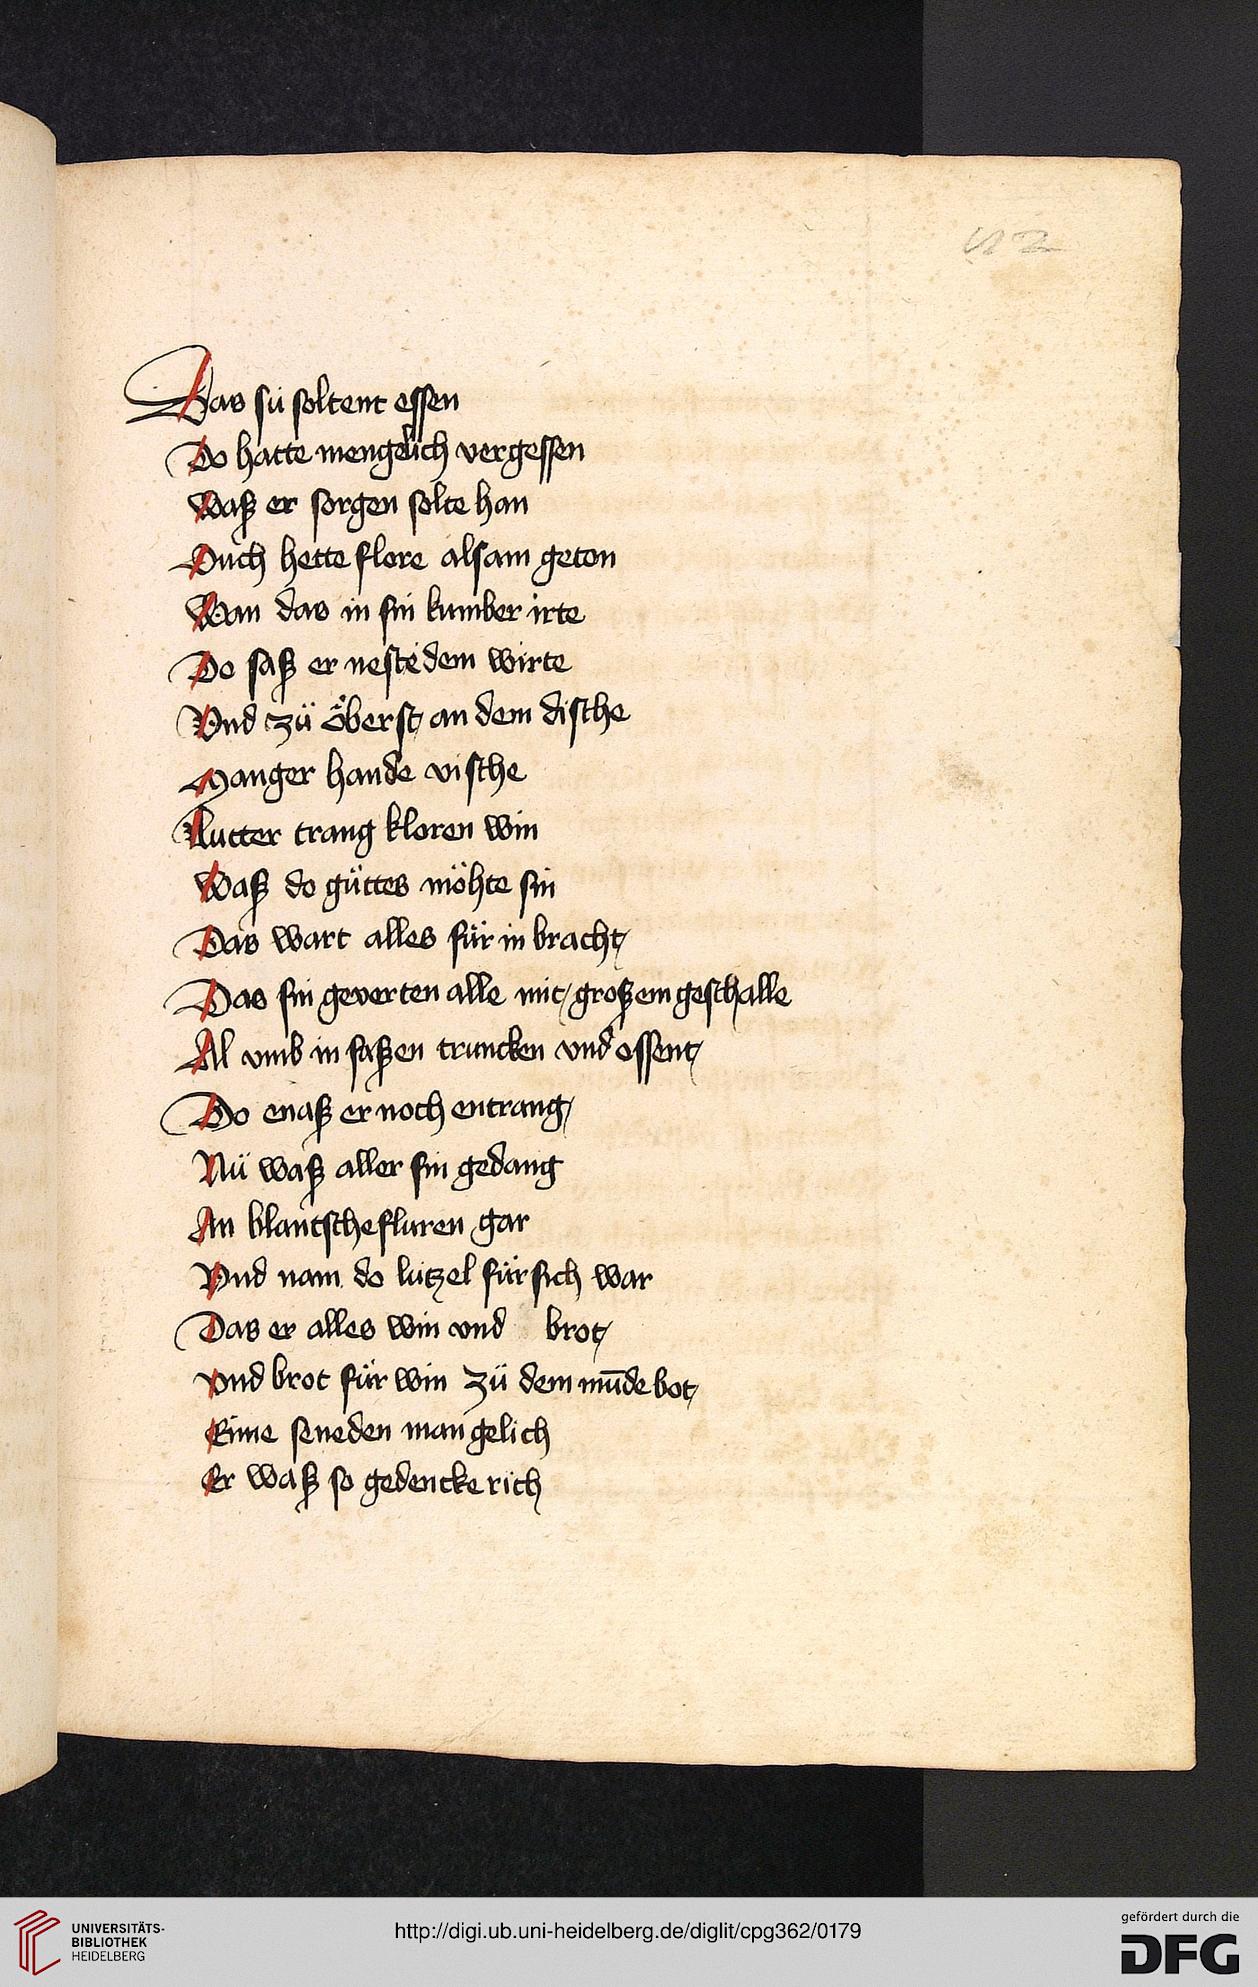 Das sü soltent essen
Do hatte mengelich vergessen
Waß er sorgen solte han
Ouch hette flore alsam geton
Wan das in sin kumber irte
Do saß er neste dem wirte
Vnd zü öberst an dem dische
Manger hande vische
Lutter trang kloren win
Waß do güttes möhte sin
Das wart alles für in bracht
Das sin geverten alle mit großem geschalle
Al vmb in saßen truncken vnd essent
Do enaß er noch entrang
Nü waß aller sin gedang
An blantschefluren gar
Vnd nam do lützel für sich war
Das er alles win vnd brot
vnd brot für win zü dem mūde bot
Eime seneden man gelich
Er waß so gedencke rich
UNIVERSITÄTS-
BIBLIOTHEK
HEIDELBERG
http://digi.ub.uni-heidelberg.de/diglit/cpg362/0179
gefördert durch die
DFG